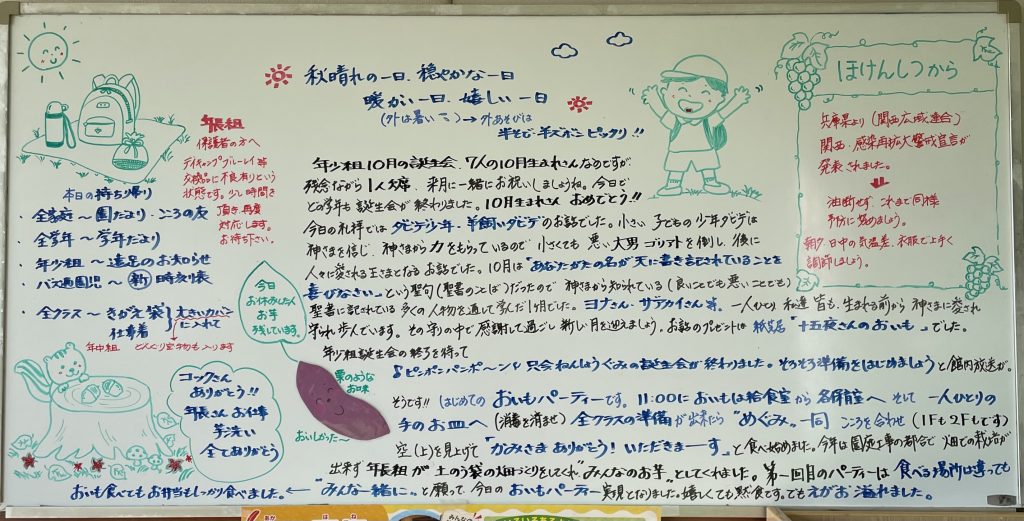 秋晴れの一日、穏やかな一日
暖かい一日、嬉しい一日
(外は暑い) → 外あそびは
半そで・半ズボン ビックリ!!
年長組
保護者の方へ
交換品に不良有りという
状態です。少し時間を
頂き、再度
対応します。
お待ち下さい。
本日の持ち帰り
・全家庭〜園だより・こころの友
・全学年〜学年だより
・年少組〜遠足のお知らせ
・バス通園児〜新時刻表
・全クラス〜きがえ袋 大きいカバン
仕事着 に入れて
年中組 どんぐり宝物も入ります
コックさん
ありがとう!!
年長さん お仕事
芋洗い
全てありがとう
今日
お休みしたくん
お芋
残しています。
栗のような
お味
おいしかった〜
年少組10月の誕生会、7人の10月生まれさんなのですが
残念ながら1人欠席、来月に一緒にお祝いしましょうね。今日で
どの学年も誕生会が終わりました。10月生まれさん おめでとう!!
今日の礼拝では ダビデ少年・羊飼いダビデのお話でした。小さい子どもの少年ダビデは
神さまを信じ、神さまから力をもらっているので 小さくても 悪い大男ゴリアテを倒し、後に
人々に愛される王さまとなる お話でした。10月は"あなたがたの名が天に書き記されていることを
喜びなさい"という聖句(聖書のことば)だったので 神さまから知られている(良いことでも悪いことでも)
聖書に記されている 多くの人物を通して学んだ1ヶ月でした。ヨナさん・ザアカイさん 等。一人ひとり 私達 皆も、生まれる前から 神さまに愛され
守られ歩んでいます。その守りの中で 感謝して過ごし 新しい月を迎えましょう。お話のプレゼントは 紙芝居「十五夜さんのおいも」でした。
年少組誕生会の終了を待って
♪ピンポンパンポ〜ン♪ 只今ねんしょうぐみの誕生会が終わりました。そろそろ準備をはじめましょう と館内放送が。
そうです!! はじめての おいもパーティーです。11:00においもは給食室から各保育室へ そして 一人ひとりの
手のお皿へ(消毒を済ませ) 全クラスの準備が出来たら "めぐみ"一同 こころを合わせ(1Fも2Fもです)
空(上)を見上げて「かみさま ありがとう! いただきまーす」と食べ始めました。今年は園庭工事の都合で 畑での栽培が
出来ず 年長組が 土のう袋の畑づくりをしてくれ "みんなのお芋"としてくれました。第一回目のパーティーは 食べる場所は違っても
"みんな一緒に"と願って 今日の おいもパーティー実現となりました。嬉しくても黙食です。でも えがお溢れました。
おいも食べても お弁当もしっかり食べました。←
ほけんしつから
兵庫県より(関西広域連合)
関西・感染再拡大警戒宣言が
発表されました。
油断せず、これまで同様
予防に努めましょう。
朝夕・日中の気温差、衣服で上手く
調節しましょう。